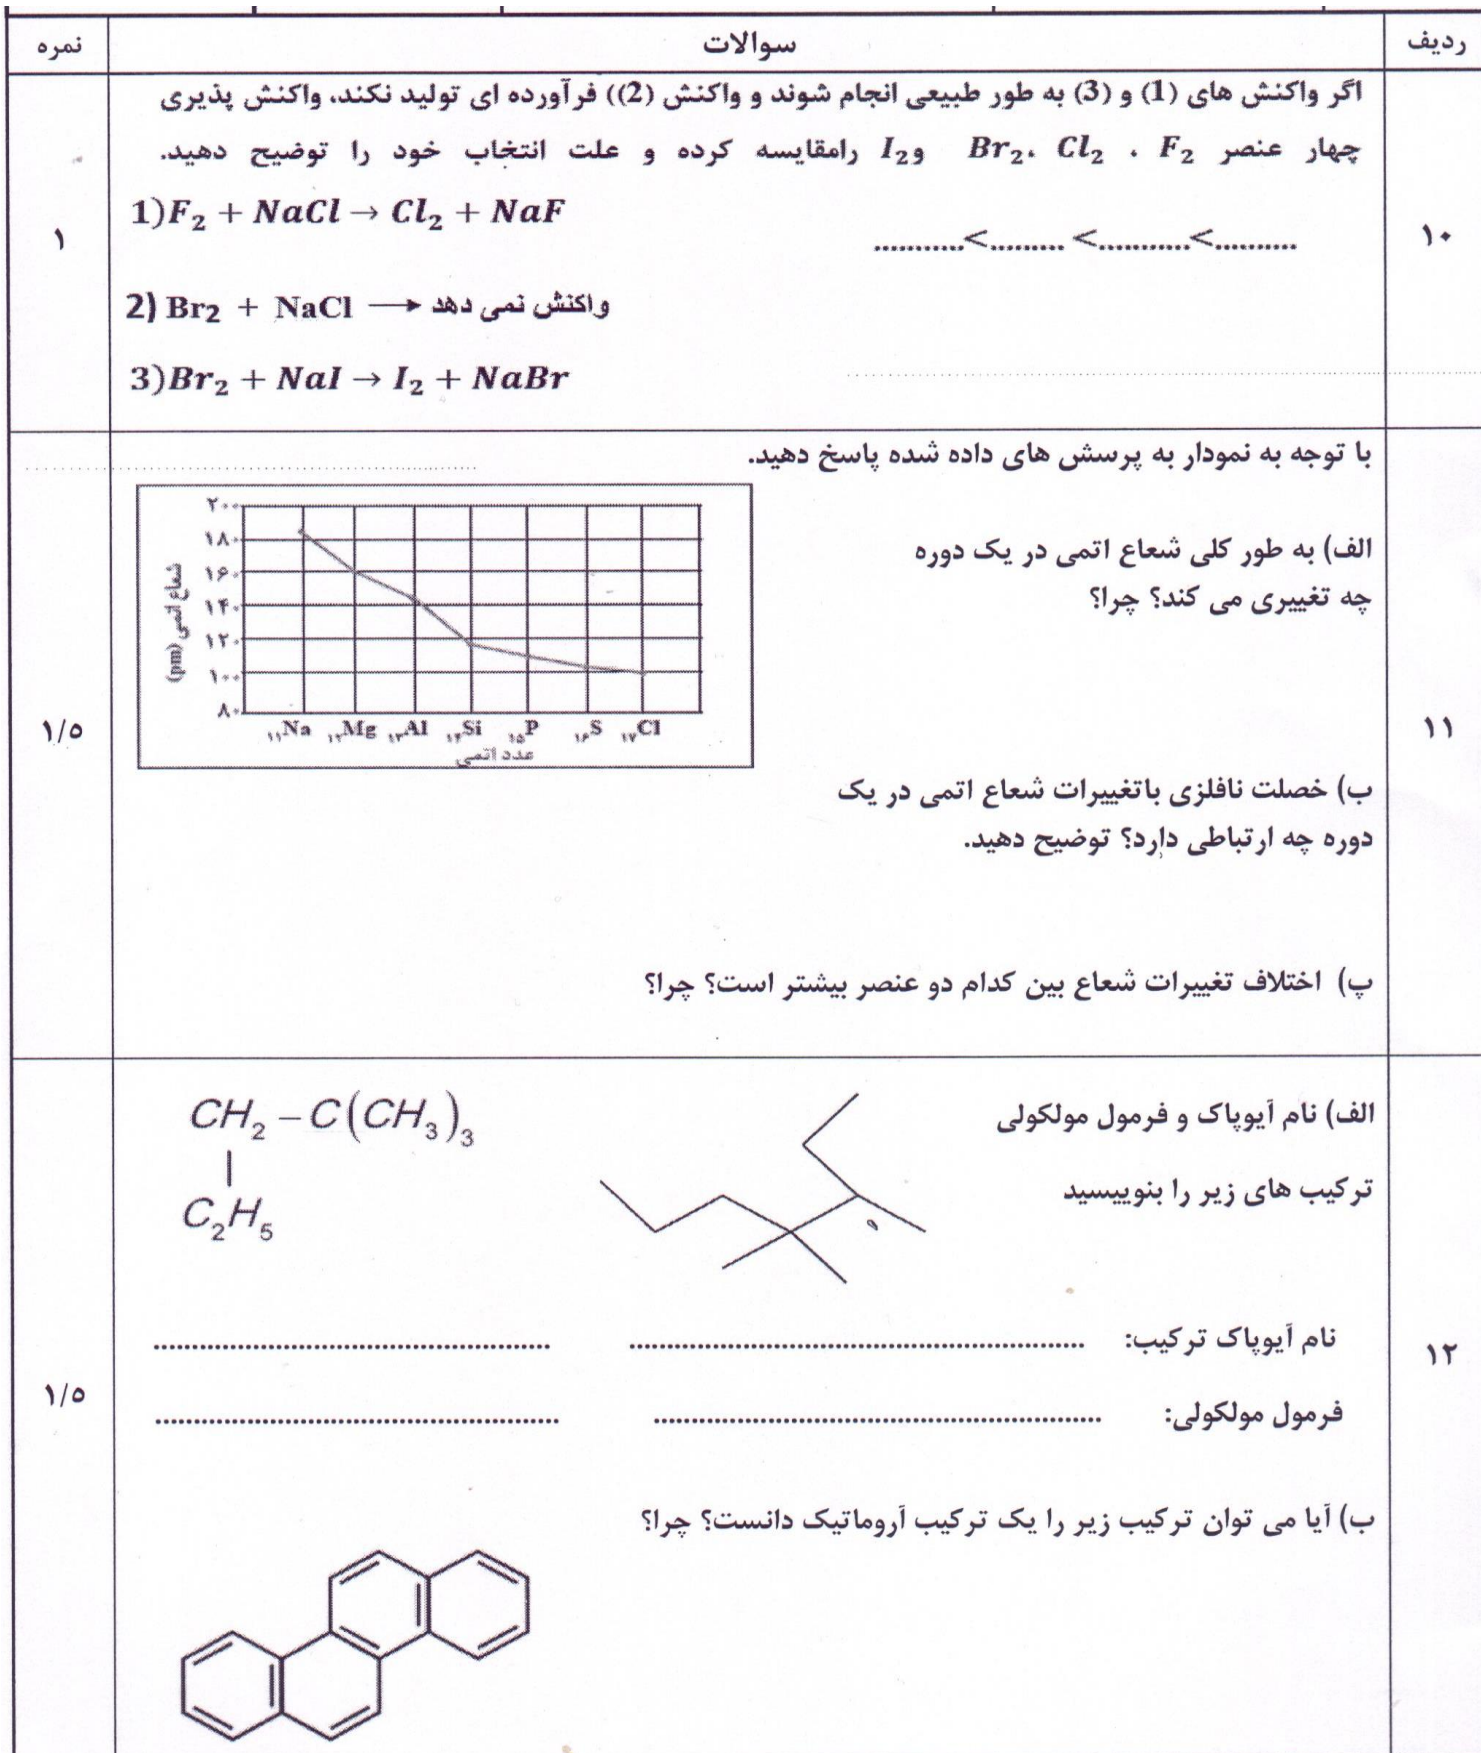 ردیف
سوالات
نمره
۱۰
اگر واکنش های (1) و (3) به طور طبیعی انجام شوند و واکنش (2)) فرآورده ای تولید نکند، واکنش پذیری
چهار عنصر F₂ ، Cl₂ ،Br₂ وI₂ رامقایسه کرده و علت انتخاب خود را توضیح دهید.
1)F₂ + NaCl → Cl₂ + NaF
...........<......... <...........<..........
2) Br₂ + NaCl ⟶ واکنش نمی دهد
3)Br₂ + NaI → I₂ + NaBr
۱
۱۱
با توجه به نمودار به پرسش های داده شده پاسخ دهید.
الف) به طور کلی شعاع اتمی در یک دوره
چه تغییری می کند؟ چرا؟
شعاع اتمی (pm)
۲۰۰
۱۸۰
۱۶۰
۱۴۰
۱۲۰
۱۰۰
۸۰
₁₁Na ₁₂Mg ₁₃Al ₁₄Si ₁₅P ₁₆S ₁₇Cl
عدد اتمی
ب) خصلت نافلزی باتغییرات شعاع اتمی در یک
دوره چه ارتباطی دارد؟ توضیح دهید.
پ) اختلاف تغییرات شعاع بین کدام دو عنصر بیشتر است؟ چرا؟
۱/۵
۱۲
الف) نام آیوپاک و فرمول مولکولی
ترکیب های زیر را بنوییسید
CH₂ – C(CH₃)₃
|
C₂H₅
نام آیوپاک ترکیب: ........................................................ ................................................
فرمول مولکولی: ........................................................ ................................................
ب) آیا می توان ترکیب زیر را یک ترکیب آروماتیک دانست؟ چرا؟
۱/۵